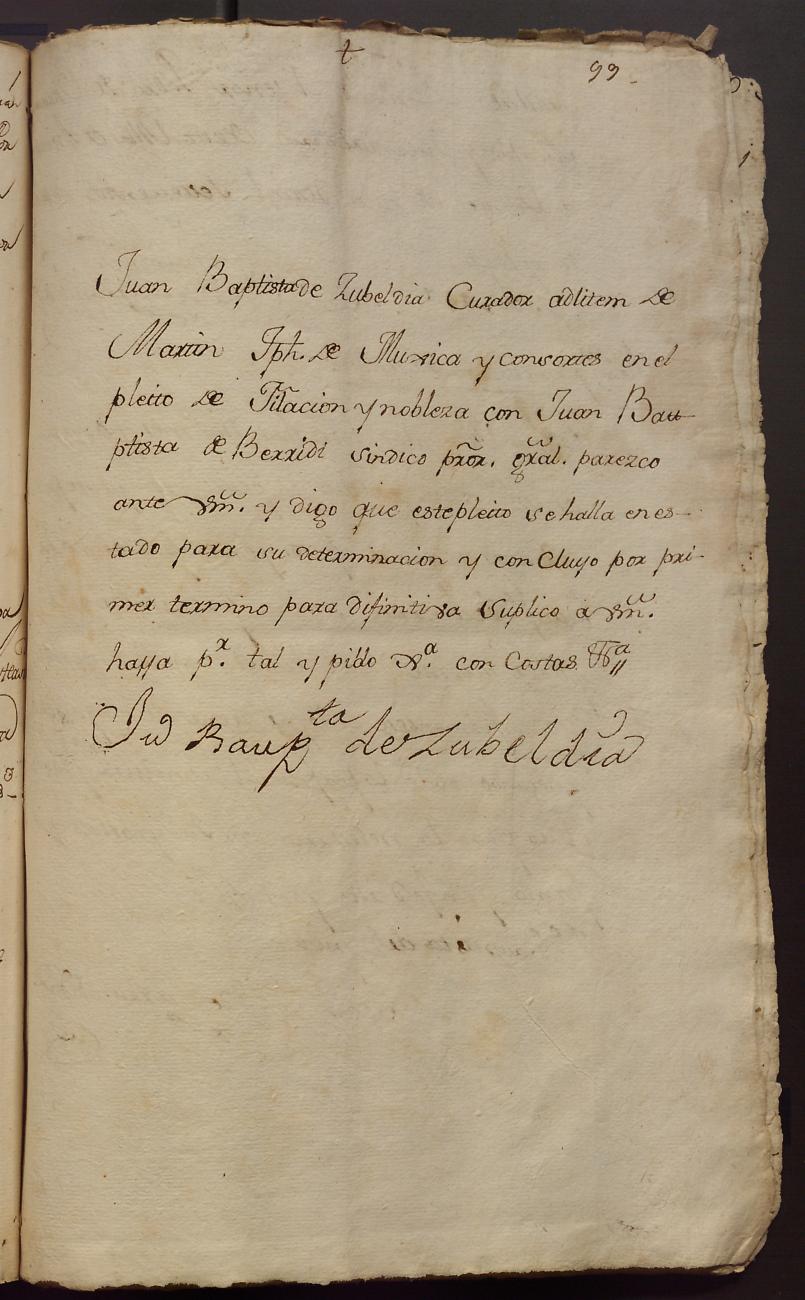 t
99
Juan Baptista de Zubeldia Curador adlitem de
Martin Jph. de Muxica y consortes en el
pleito de Filacion y nobleza con Juan Bau-
ptista de Berridi sindico pror. gral. parezco
ante vm. y digo que este pleito se halla en es-
tado para su determinacion y concluyo por pri-
mer termino para difinitiva Suplico a vm.
haya pr. tal y pido Xa. con Costas
Ju Baupta de Zubeldia